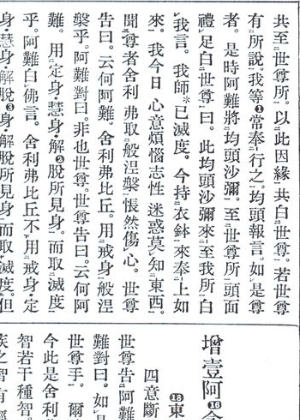 共至世尊所。以此因縁共白世尊。若世尊
有所説我等❶常奉行之。均頭報言。如是尊
者。是時阿難將均頭沙彌。至世尊所頭面
禮足白世尊曰。此均頭沙彌來至我所白
我言。我師*已滅度。今持衣鉢來奉上如
來。我今日心意煩惱志性迷惑莫知東西。
聞尊者舍利弗取般涅槃悵然傷心。世尊
告曰。云何阿難。舍利弗比丘。用戒身般涅
槃乎。阿難對曰。非也世尊。世尊告曰。云何阿
難。用定身・慧身・解❷脱所見身。而取滅度
乎。阿難白佛言。舍利弗比丘不用戒身・定
身・慧身・解脱❸身・解脱所見身而取滅度。但
增壹阿⓰
四意斷
⓲東
世尊告阿難
難對曰。如是
世尊手。爾
今此是舍利
智若干種智
族之智有